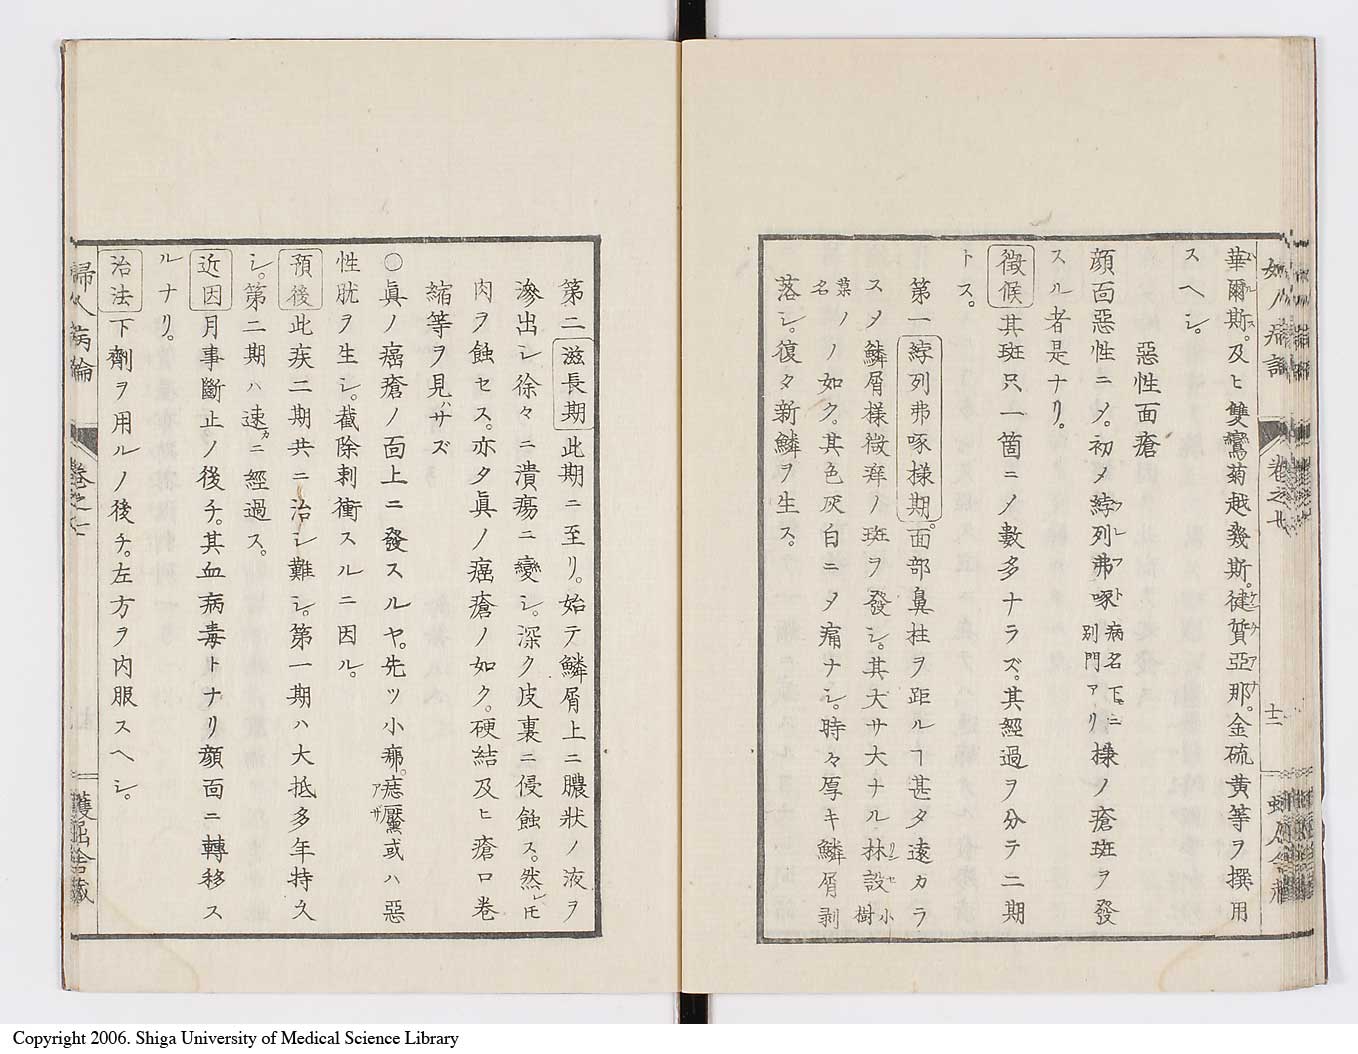 華爾斯。及ヒ雙鸞菊越幾斯。健質亞那。金硫黄等ヲ撰用
スヘシ。
惡性面瘡
顔面惡性ニメ。初メ綍列弗啄病名下ニ別門アリ樣ノ瘡斑ヲ發
スル者是ナリ。
徴候 其斑只一箇ニメ數多ナラズ。其經過ヲ分テ二期
トス。
第一綍列弗啄樣期。面部鼻柱ヲ距ルヿ甚タ遠カラ
スメ鱗屑樣微痒ノ斑ヲ發シ。其大サ大ナル林設小樹
菓ノ名ノ如ク。其色灰白ニメ痛ナシ。時々厚キ鱗屑剥
落シ。復タ新鱗ヲ生ス。
卷之廿
十二
第二滋長期 此期ニ至リ。始テ鱗屑上ニ膿状ノ液ヲ
滲出シ徐々ニ潰瘍ニ變シ。深ク皮裏ニ侵蝕ス。然レ𪜈
肉ヲ蝕セス。亦タ眞ノ癌瘡ノ如ク。硬結及ヒ瘡口卷
縮等ヲ見ハサズ
○眞ノ癌瘡ノ面上ニ發スルヤ。先ツ小疿。痣黶或ハ惡
性肬ヲ生シ。截除刺衝スルニ因ル。
預後 此疾二期共ニ治シ難シ。第一期ハ大抵多年持久
シ。第二期ハ速カニ經過ス。
近因 月事斷止ノ後チ。其血病毒トナリ顔面ニ轉移ス
ルナリ。
治法 下劑ヲ用ルノ後チ。左方ヲ内服スヘシ。
婦人病論
卷之
護屈舍藏
Copyright 2006. Shiga University of Medical Science Library